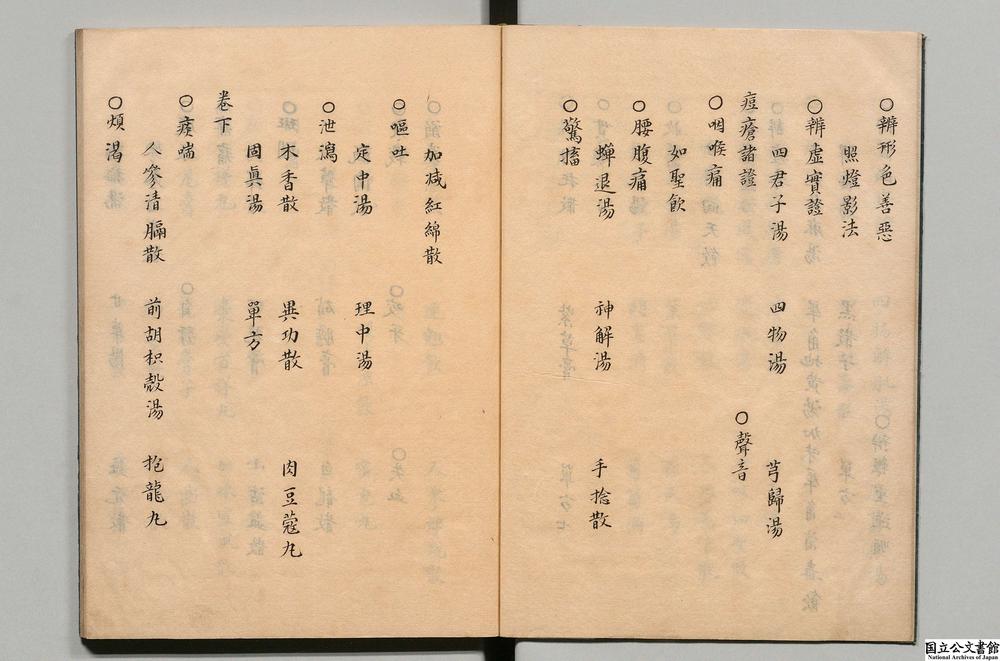 ○辨形色善惡
照燈影法
○辨虛實證
四君子湯　四物湯　芎歸湯
痘瘡諸證　○聲音
○咽喉痛
如聖飲
○腰腹痛
○蟬退湯　神解湯　手捻散
○驚搐
加减紅綿散
○嘔吐
定中湯　理中湯
○泄瀉
木香散　異功散　肉豆蔻丸
固眞湯　單方
卷下
○痰喘
人參清膈散　前胡枳殼湯　抱龍丸
○煩渴
国立公文書館
National Archives of Japan